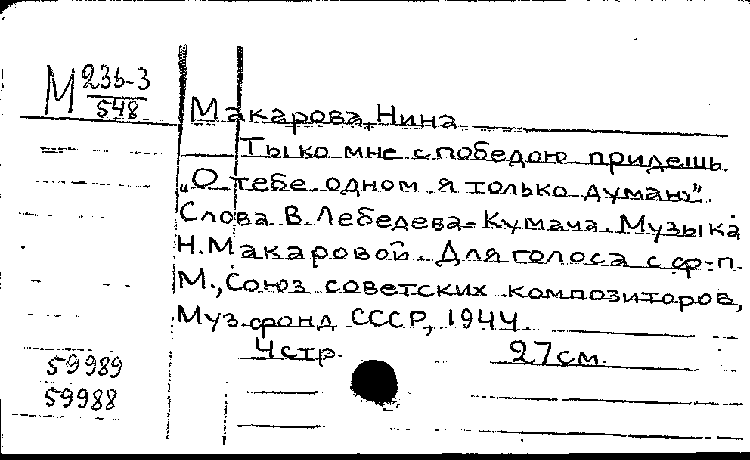 М 23б-3
548
Макарова, Нина
Ты ко мне с победою придешь.
„О тебе одном я только думаю".
Слова В. Лебедева-Кумача. Музыка
Н. Макаровой. Для голоса с ф-п.
М., Союз советских композиторов,
Муз. фонд СССР, 1944.
4 стр. 27 см.
59989
59988